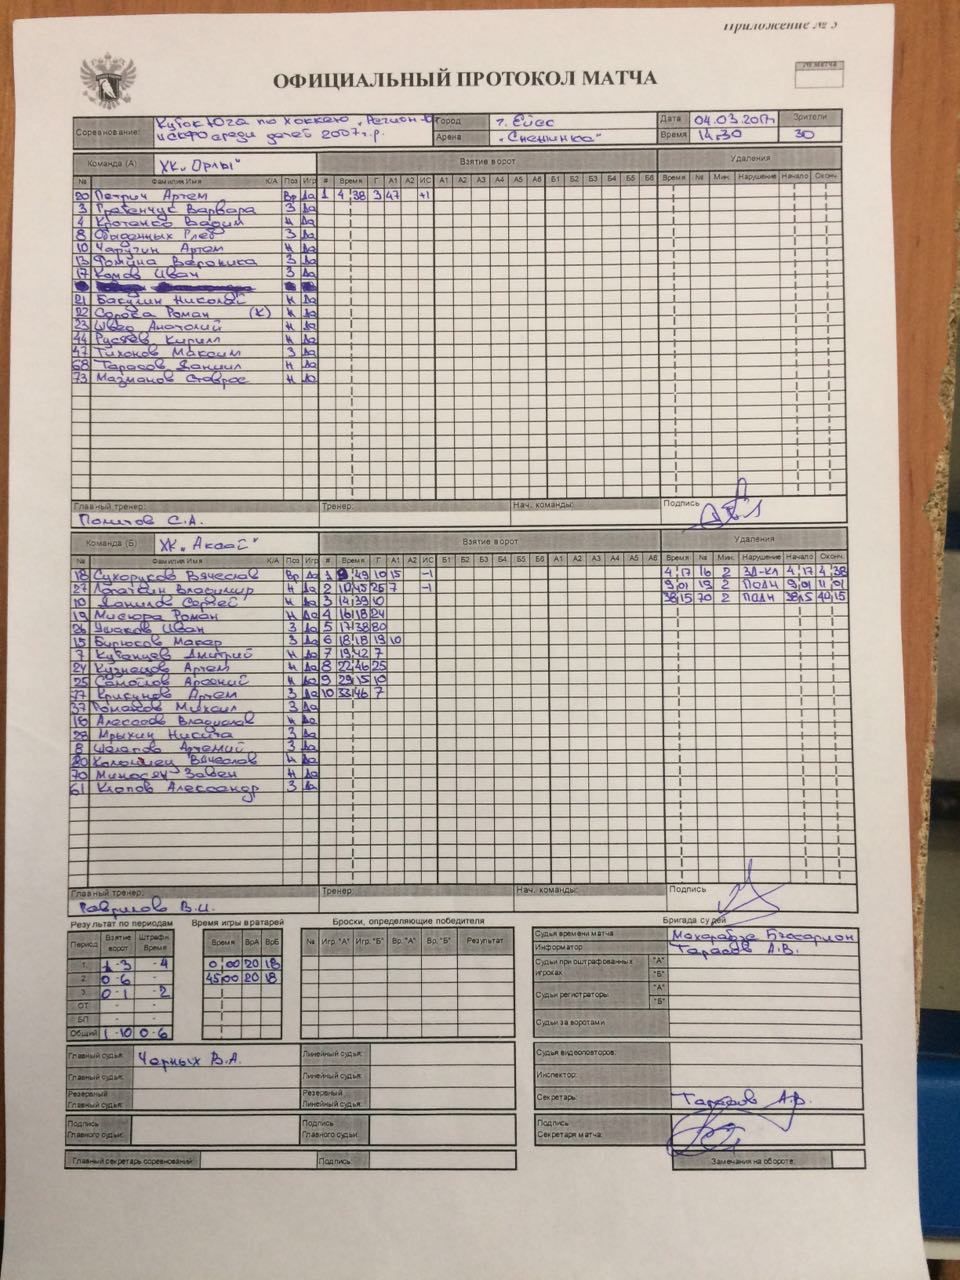 Приложение № 3
ОФИЦИАЛЬНЫЙ ПРОТОКОЛ МАТЧА
№ матча
Соревнование: Кубок Юга по хоккею „Регион-
среди детей 2007 г.р.
Город г. Ейск Дата 04.03.2017 Зрители
Арена „Снежинка" Время 14,30 30
Команда (А) ХК „Орлы" Взятие ворот Удаления
№ Фамилия Имя К/А Поз Игр # Время Г А1 А2 ИС А1 А2 А3 А4 А5 А6 Б1 Б2 Б3 Б4 Б5 Б6 Время № Мин. Нарушение Начало Оконч.
20 Петрич Артем Вр Да 1 4 38 3 47 +1
3 Гребенчук Варвара З Да
4 Кротенко Вадим Н Да
8 Обыденных Глеб З Да
10 Чаругин Артем Н Да
13 Фомина Вероника З Да
17 Комов Иван З Да
21 Бакулин Николай Н Да
22 Сорока Роман (К) Н Да
23 Швед Анатолий Н Да
44 Кирилл Н Да
47 Тихонов Максим З Да
68 Тарасов Даниил Н Да
73 Мазманов Ставрос Н
Главный тренер: Тренер: Нач. команды: Подпись
Политов С.А.
Команда (Б) ХК „Аксай" Взятие ворот Удаления
№ Фамилия Имя К/А Поз Игр # Время Г А1 А2 ИС Б1 Б2 Б3 Б4 Б5 Б6 А1 А2 А3 А4 А5 А6 Время № Мин. Нарушение Начало Оконч.
18 Сухоруков Вячеслав Вр Да 1 49 10 15 -1 4 17 16 2 ЗД-КЛ 4 17 4 38
27 Лопаткин Владимир Н Да 2 10 45 25 7 -1 9 01 19 2 ПОДН 9 01 11 01
10 Данилов Сергей Н Да 3 14 39 10 38 15 70 2 ПОДН 38 15 40 15
19 Мисюра Роман Н Да 4 16 18 24
26 Ушаков Иван З Да 5 17 38 80
15 Бирюков Макар З Да 6 18 18 19 10
7 Кубанцев Дмитрий Н Да 7 19 42 7
24 Кузнецов Артем Н Да 8 22 46 25
25 Самойлов Арсений Н Да 9 29 15 10
77 Крисунов Артем З Да 10 33 46 7
37 Романов Михаил З Да
16 Владислав Н Да
28 Мрыхин Никита З Да
8 Шелапов Артемий З Да
80 Коломиец Вячеслав Н Да
70 Миносян Завен Н Да
61 Клопов Александр З Да
Главный тренер: Тренер: Нач. команды: Подпись
Гаврилов В.И.
Результат по периодам Время игры вратарей Броски, определяющие победителя Бригада судей
Период Взятие ворот Штрафн Время Время ВрА ВрБ № Игр. "А" Игр. "Б" Вр. "А" Вр. "Б" Результат
1. 1-3 -4 0,00 20 18
2. 0-6 - 45,00 20 18
3. 0-1 -2
ОТ - -
БП - -
Общий 1-10 0-6
Судья времени матча
Информатор Тарасов А.В.
Судьи при оштрафованных игроках "А" "Б"
Судьи регистраторы "А" "Б"
Судьи за воротами
Главный судья: Черных В.А. Линейный судья: Судья видеоповторов:
Главный судья: Линейный судья: Инспектор:
Резервный Главный судья: Резервный Линейный судья: Секретарь: Тарасов А.В.
Подпись Главного судьи: Подпись Главного судьи: Подпись Секретаря матча:
Главный секретарь соревнований: Подпись Замечания на обороте: